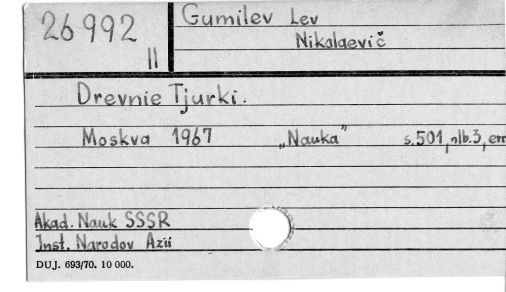 26992
II
Gumilev Lev
Nikolaevič
Drevnie Tjurki.
Moskva 1967 „Nauka" s.501, nlb.3, err
Akad. Nauk SSSR
Inst. Narodov Azii
DUJ. 693/70. 10 000.